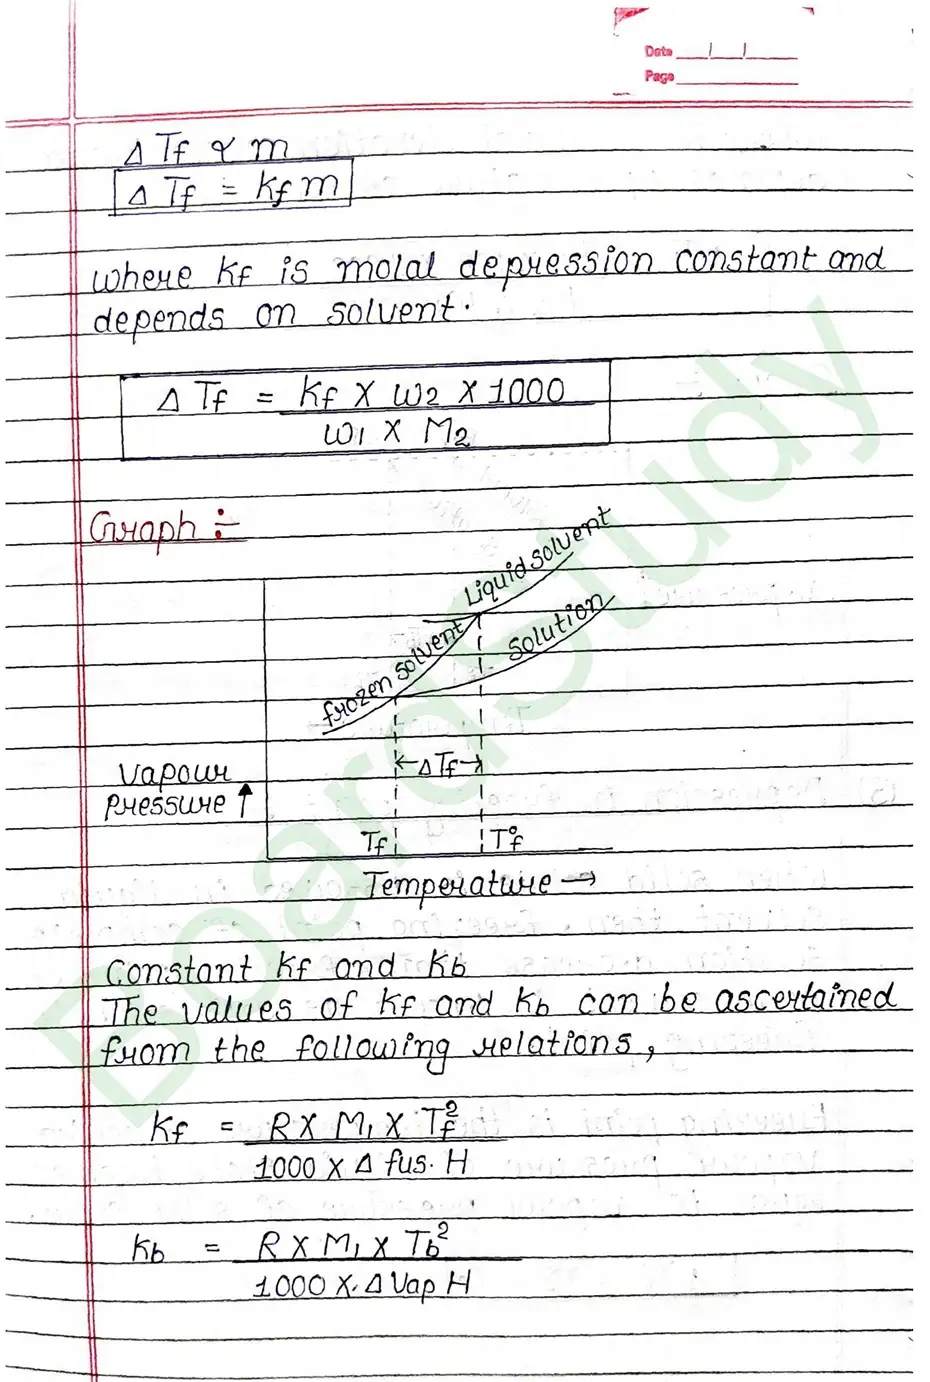 Date __/__/__
Page
Δ Tf ∝ m
Δ Tf = Kf m
where Kf is molal depression constant and
depends on solvent.
Δ Tf = Kf X W2 X 1000
W1 X M2
Graph :-
Liquid solvent
frozen solvent
solution
ΔTf
Vapour
Pressure ↑
Tf
T°f
Temperature →
Constant Kf and Kb
The values of Kf and Kb can be ascertained
from the following relations,
Kf = R X M1 X Tf²
1000 X Δ fus. H
Kb = R X M1 X Tb²
1000 X Δ Vap H
BoardStudy